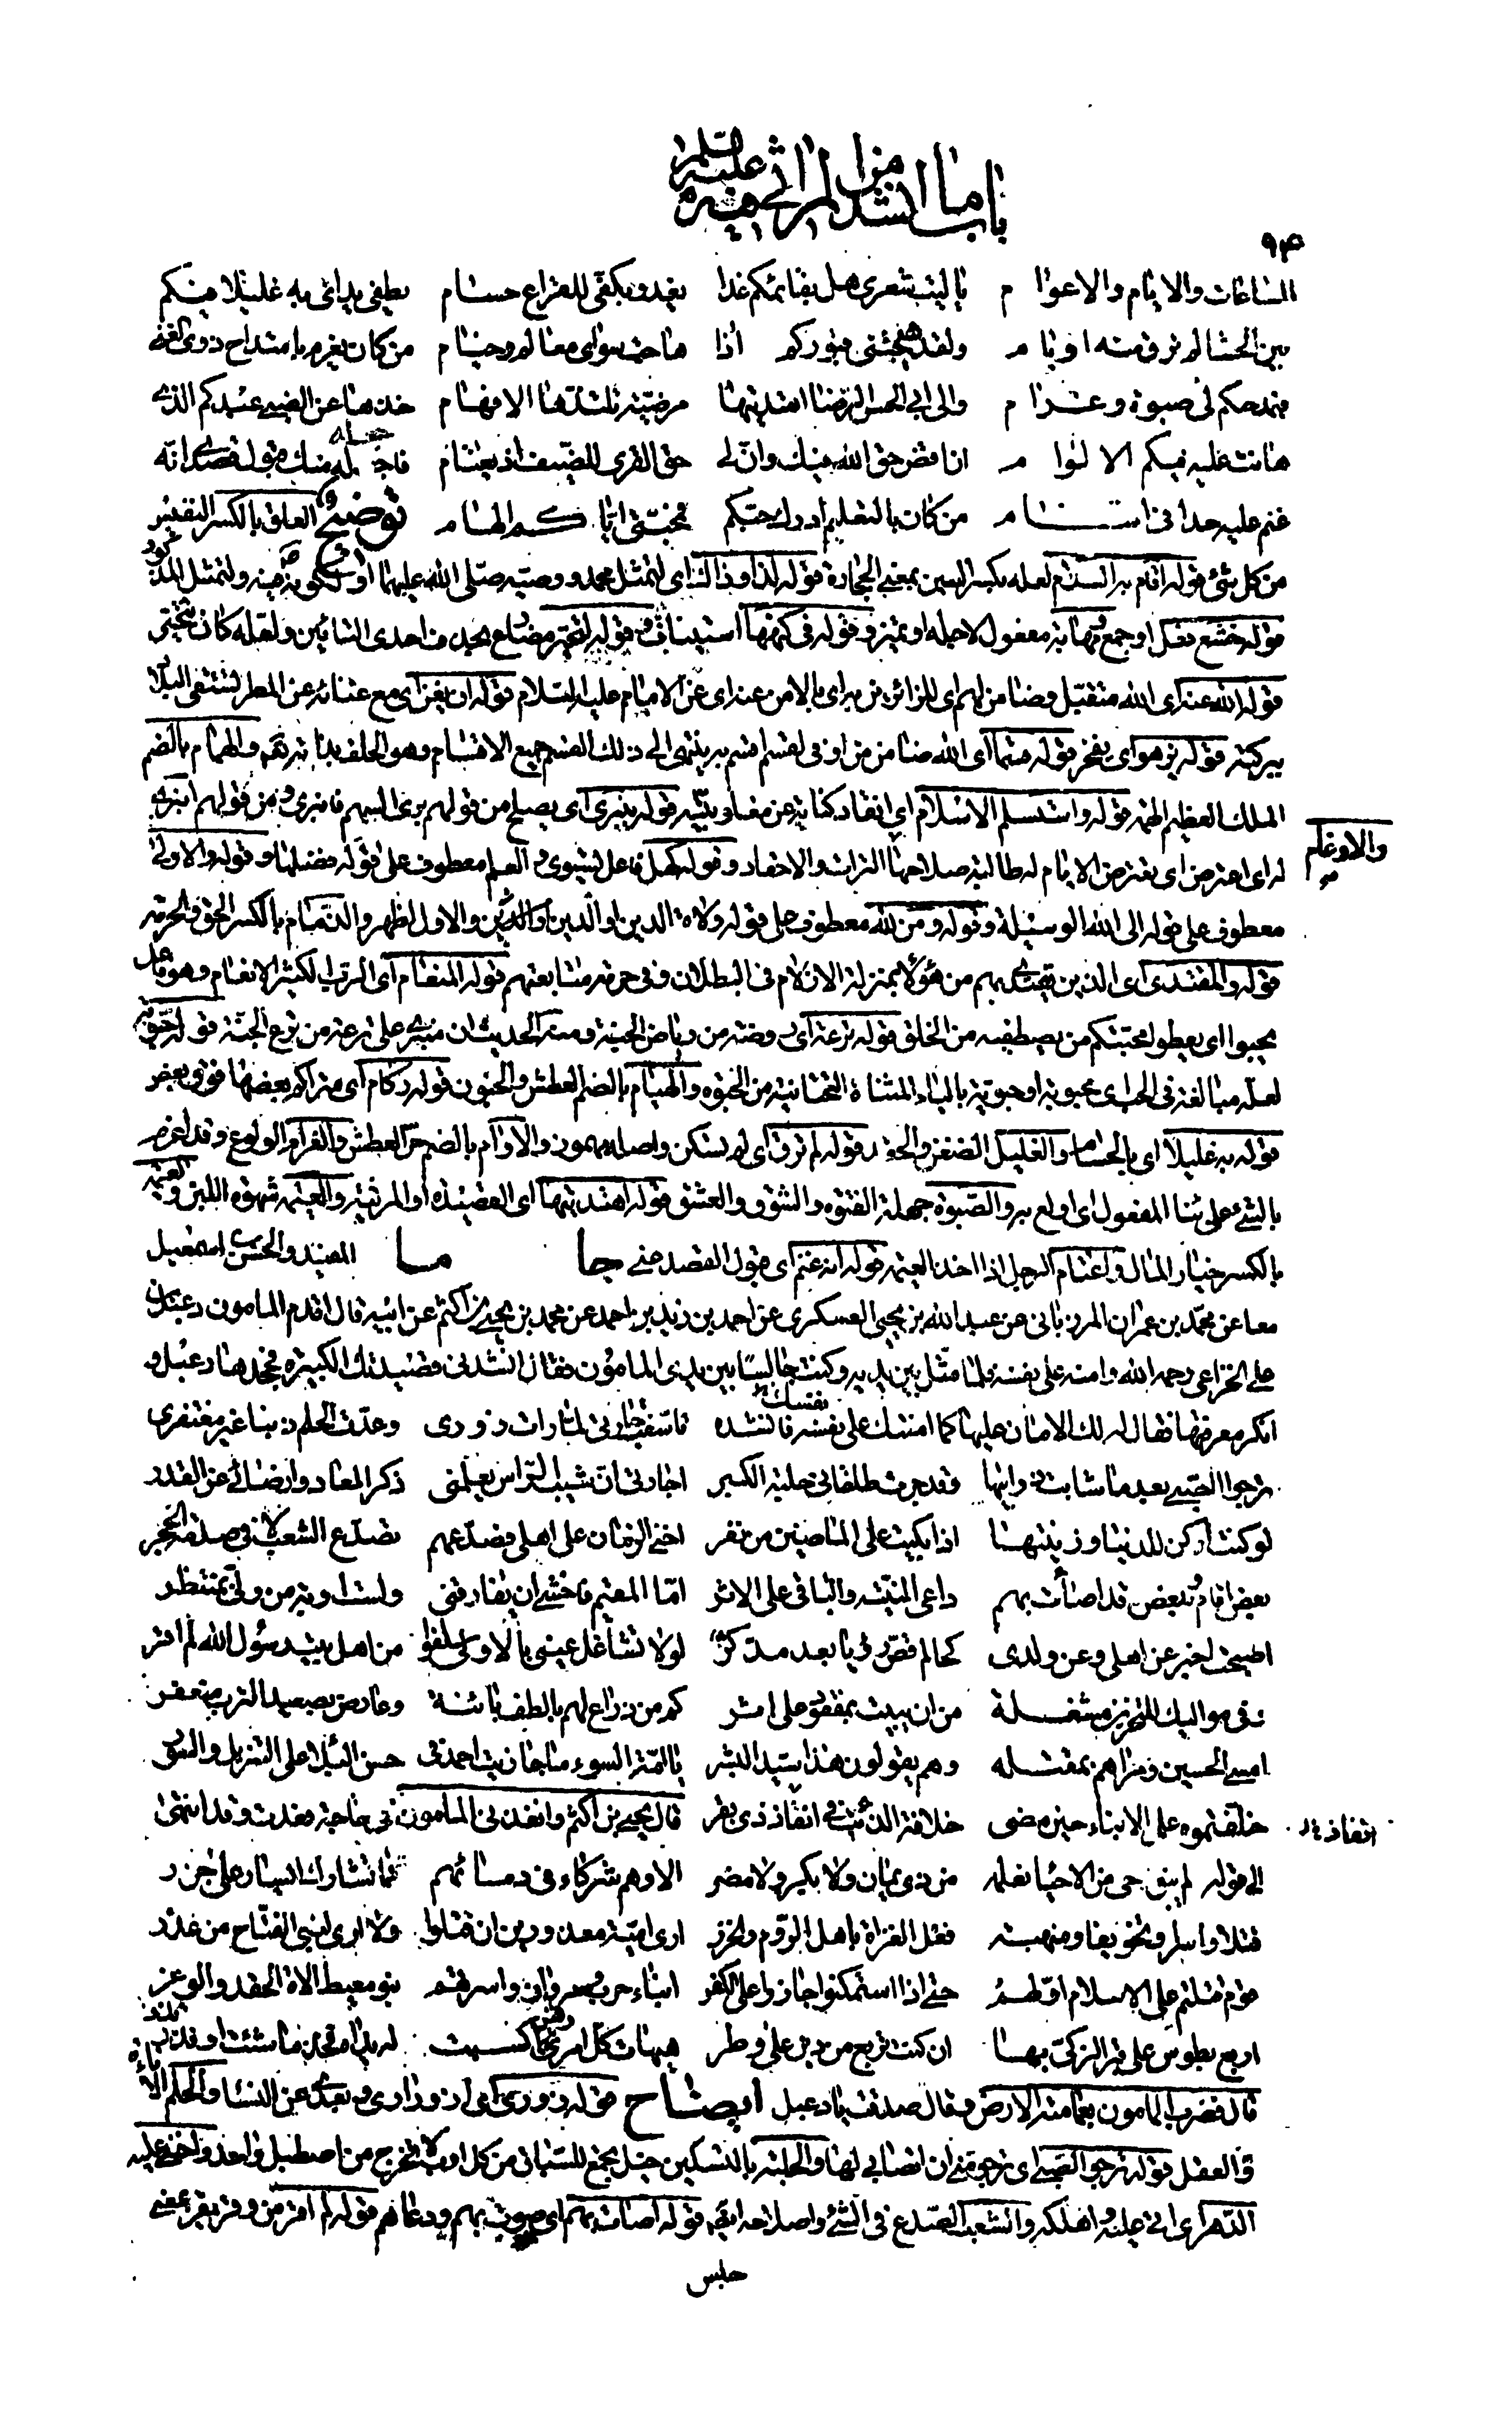 باب ما انشد من المراثي فيه عليه السلم
٩٣
الساعات والايام والاعوام يا ليت شعري هل بقائمكم غدا يغدو بكفى للقراع حسام يطفي يداى به غليلا فيكم
بين الحشا لم ترق منه اوام ولقد يهيجني قبوركم اذا هاجت سواى معالم وخيام من كان يغرم بامتداح ذوى الغنى
فبمدحكم لى صبوة وغرام والى ابى الحسن الرضا اهديتها مرضية تلتذها الافهام خذها عن الضبي عبدكم الذى
هانت عليه فيكم الالوام ان اقض حق الله فيك وان لى حق القرى للضيف اذ يعتام فاجعله منك قبول قصدى انه
غنم عليه حدانى استغنام من كان بالتعليم ادرك حبكم فمحبتى اياكم الهام توضيح العلق بالكسر النفيس
من كل شئ قوله اقام به السلام لعله بكسر السين بمعنى الحجارة قوله لذا وذاك اى لتمثل محمد ووصيه صلى الله عليهما
قوله خشع فعل او جمع مفعول لاجله او تميز وقوله فى كهفها استيناف وقوله لتحير مضارع بحذف احدى التائين ولعله كان تحيتى
قوله الله عنه اى الله متقبل وضامن لهم اى للزائرين به اى بالامن عنه اى عن الامام عليه السلام قوله ان يغن اى مع غنائه عن المطر تستقى البلاد
ببركته قوله يزهو اى يفخر قوله قسما اى الله ضامن قسم به ينتهى الى ذلك القسم جميع الاقسام وهو الحلف بذاته تعالى والهمام بالضم
الملك العظيم الهمة قوله واستسلم الاسلام اى انقاد كناية عن قوله ينبرى اى يصلح من قولهم برى السهم فانبرى ومن قولهم انبرى
له اى اعترض اى يعترض الايام له طالبة صلاحها الترات والاحقاد وقوله كهل فاعل ليسوى والعلم معطوف على قوله فضلها وقوله والاولى
والاوغام
معطوف على قوله الى الله الوسيلة وقوله ومن لله معطوف على قوله ولاة الدين او الدين او الدين والاول اظهر والذمام بالكسر الحق والحرمة
قوله والمقتدى اى الذين يقتدى بهم من هؤلاء بمنزلة الازلام فى البطلان وفى حرمة متابعتهم قوله المنعام اى الرب الكثير الانعام وهو فاعل
يحبوا اى يعطو لمحبتكم من يصطفيه من الخلق قوله ترعة اى روضة من رياض الجنة ومنه الحديث ان منبرى على ترعة من ترع الجنة قوله
لعله مبالغة فى الحب اى محبوبة او حيوتية بالياء المثناة التحتانية من الحيوة والهيام بالضم العطش والجنون قوله ركام اى متراكم بعضها فوق بعض
قوله به غليلا اى بالحسام والغليل الضغن والحقد قوله لم ترق اى لم تسكن واصله مهموز والاوام بالضم حر العطش والغرام الولوع وقد اغرم
بالشئ على بناء المفعول اى اولع به والصبوة جهلة الفتوة والشوق والعشق قوله اهديتها اى القصيدة او المرثية والعيمة شهوة اللبن والعيمة
بالكسر خيار المال واعتام الرجل اذا اخذ العيمة قوله انه غنم اى قبول القصد منى جا ما المفيد والحسن بن اسمعيل
معا عن محمد بن عمران المرزبانى عن عبد الله بن يحيى العسكرى عن احمد بن زيد بن احمد عن محمد بن يحيى بن اكثم عن ابيه قال اقدم المامون دعبل بن
على الخزاعى رحمه الله وامنه على نفسه فلما مثل بين يديه وكنت جالسا بين يدى المامون فقال انشدنى قصيدتك الكبيرة فجحدها دعبل و
انكر معرفتها فقال له لك الامان عليها كما امنتك على نفسك فانشده تاسفت جارتى لما رات زورى وعدت الحلم ذنبا غير مغتفرى
ترجوا الصبى بعد ما شابت ذوائبها وقد جرت طلقا فى حلبة الكبر اجارتى ان شيب الراس يعلمنى ذكر المعاد وارضائى عن القدر
لو كنت اركن للدنيا وزينتها اذا بكيت على الماضين من نفر اخنى الزمان على اهلى فصدعهم تصدع الشعب لاقى صدمة الحجر
بعض اقام وبعض قد اصات بهم داعى المنية والباقى على الاثر اما المقيم فاخشى ان يفارقنى ولست اوبة من ولى بمنتظر
اصبحت اخبر عن اهلى وعن ولدى كحالم قص رؤيا بعد مدكر لولا تشاغل عينى بالاولى سلفوا من اهل بيت رسول الله لم اقر
وفى مواليك للتحزين مشغلة من ان يبيت بمفقود على اثر كم من ذراع لهم بالطف بائنة وعارض بصعيد الترب منعفر
امسى الحسين ومسراهم بمقتله وهم يقولون هذا سيد البشر يا امة السوء ما جازيت احمد فى حسن البلاء على التنزيل والسور
خلفتموه على الابناء حين مضى خلافة الذئب فى انقاذ ذى بقر قال يحيى بن اكثم وانفذنى المامون فى حاجة فعدت وقد انتهى
انفاذ
الى قوله لم يبق حى من الاحياء نعلمه من ذى يمان ولا بكر ولا مضر الا وهم شركاء فى دمائهم كما تشارك ايسار على جزر
قتلا واسرا وتخويفا ومنهبة فعل الغزاة باهل الروم والخزر ارى امية معذورين ان قتلوا ولا ارى لبنى الفتاح من عذر
قوم قتلتم على الاسلام اولهم حتى اذا استمكنوا جازوا على الكفر ابناء حرب ومروان واسرتهم بنو معيط الاة الحقد والوغر
اربع بطوس على قبر الزكى بها ان كنت تربع من دين على وطر هيهات كل امرئ رهن بما كسبت له يداه فخذ ما شئت او فذر
قال فضرب المامون بعمامته الارض وقال صدقت يا دعبل ايضاح قوله زورى اى ازورارى وبعدى عن النساء والحلم الاناءة
والعقل قوله ترجو الصبى اى ترجو منى ان اتصابى لها والحلبة بالتسكين خيل تجمع للسباق من كل اوب لا تخرج من اصطبل واحد واخنى عليه
الدهر اى اتى عليه واهلكه والشعب الصدع فى الشئ واصلاحه ايضا قوله اصات بهم اى صوت بهم ودعاهم قوله لم اقر من وقر يقر بمعنى
جلس